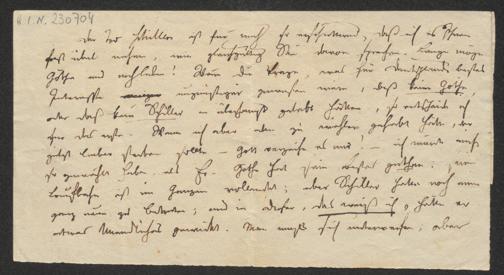 H.I.N. 230704
Der Tod Schillers ist für mich so erschütternd, daß ich es Ihnen
fast übel nehme, wie Sie davon sprechen. Lange möge
Göthe uns noch leben! Wenn die Frage, was für Deutschlands bestes
Interesse gewesen wäre, daß kein Göthe,
oder daß kein Schiller überhaupt gelebt hätten, so entscheide ich
das erste. Wenn ich aber zu wählen gehabt hätte, wer
lieber sterben sollte – Gott verzeihe es mir! – ich würde nicht
haben, als Göthe hat sein gethan; seine
Laufbahn ist im Ganzen vollendet; aber Schiller hatte noch eine
ganz neue zu betreten; und in dieser, das weiß ich, hätte er
etwas Unendliches gewirkt. Man muß sich unterwerfen; aber